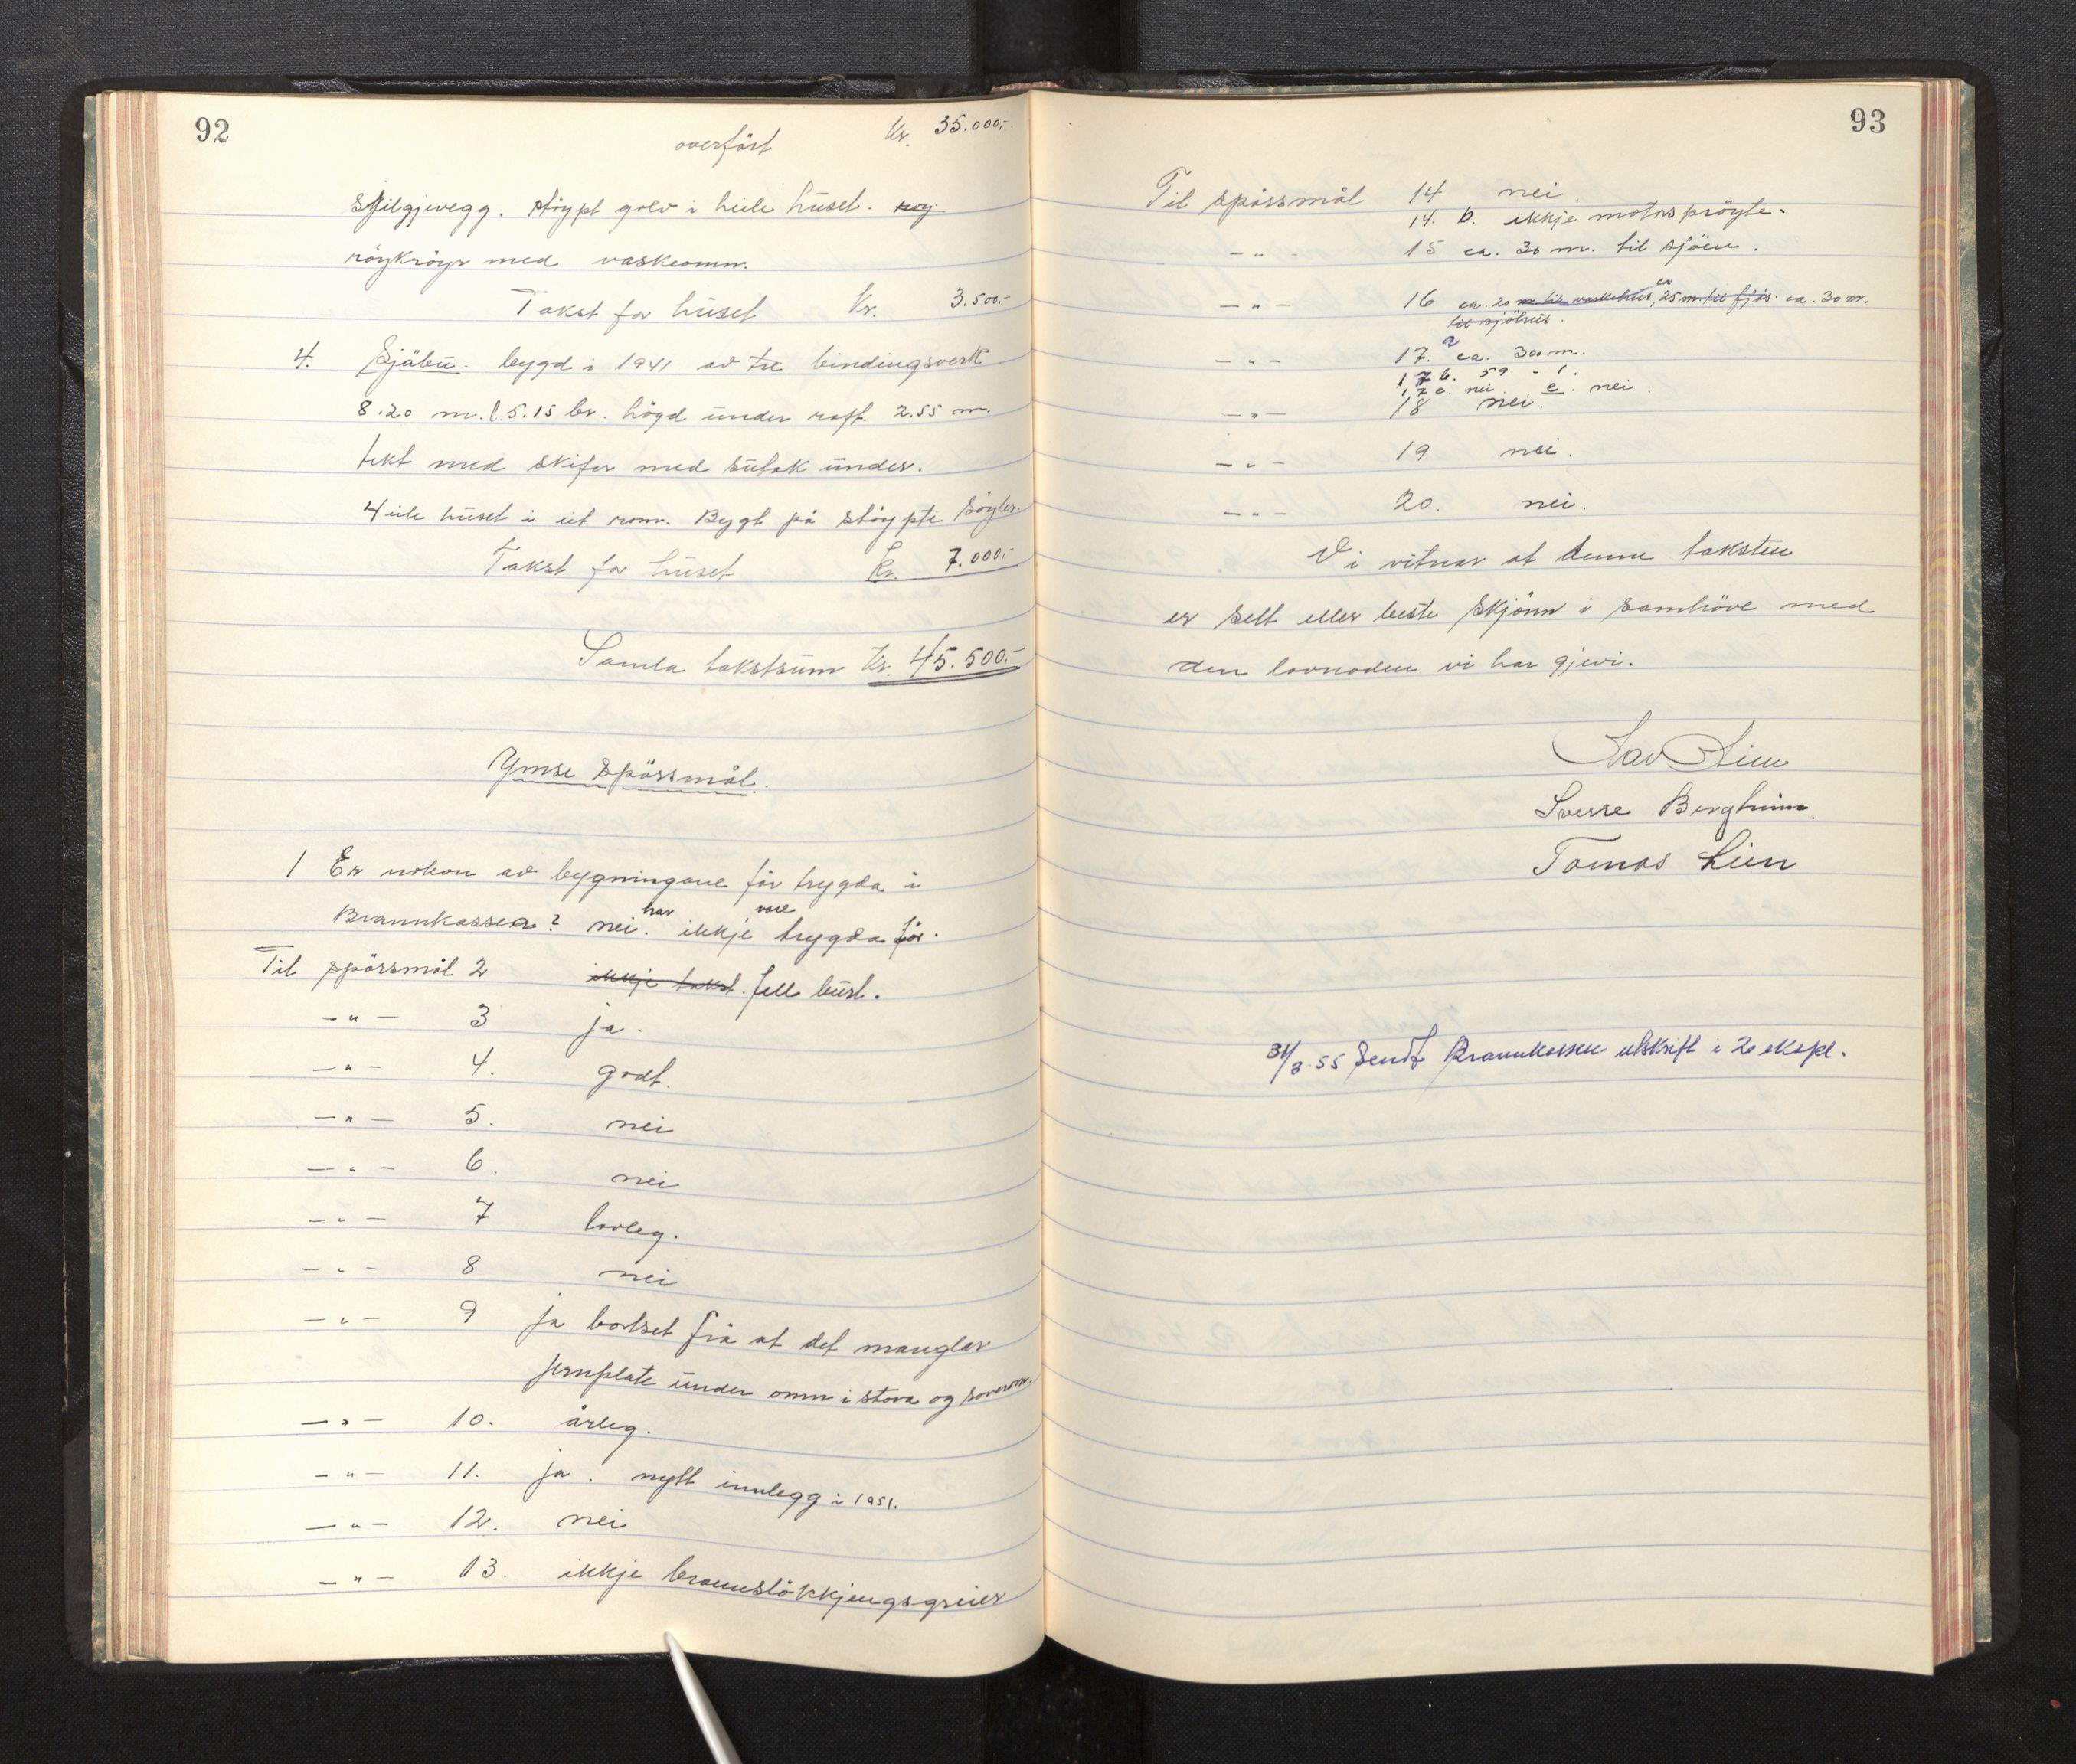 92
overfört Kr. 35.000,-
skilgjevegg. Støypt golv i heile huset. røy
röykröyr med vaskeomn.
Takst for huset Kr. 3.500.-
4. Sjäbu. bygd i 1941 av tre bindingsverk
8.20 m. l 5.15 br. högd under raft. 2.55 m.
tekt med skifer med sutak under.
Heile huset i eit rom. Bygt på støypte söyler.
Takst for huset Kr. 7.000.-
Samla takstsum Kr. 45.500.-
Ymse Spörsmål.
1 Er nokon av bygningane för trygda i
Brannkassen? nei. har ikkje vore trygda för.
Til spörsmål 2 ikkje takst. fell burt.
- " - 3 ja.
- " - 4. godt.
- " - 5. nei
- " - 6. nei
- " - 7 lovleg.
- " - 8 nei
- " - 9 ja bortset frå at det manglar
jernplate under omn i stova og soverom.
- " - 10. årleg.
- " - 11. ja. nytt innlegg i 1951.
- " - 12. nei
- " - 13. ikkje brannslökkjengsgreier
93
Til spörsmål 14 nei.
14. b. ikkje motorspröyte.
- " - 15 ca. 30 m. til sjöen.
- " - 16 ca. 20 m til vaskehus, ca 25 m. til fjös. ca. 30 m.
til sjöhus.
- " - 17. a ca. 300 m.
17 b. 59 - 1.
17 c. nei. e. nei.
- " - 18 nei.
- " - 19 nei.
- " - 20. nei.
Vi vitnar at denne taksten
er sett etter beste skjönn i samhöve med
den lovnaden vi har gjevi.
Lav Lien
Sverre Bergheim.
Tomas Lien
31/3-55 Sendt Brannkassen utskrift i 2 ekspl.